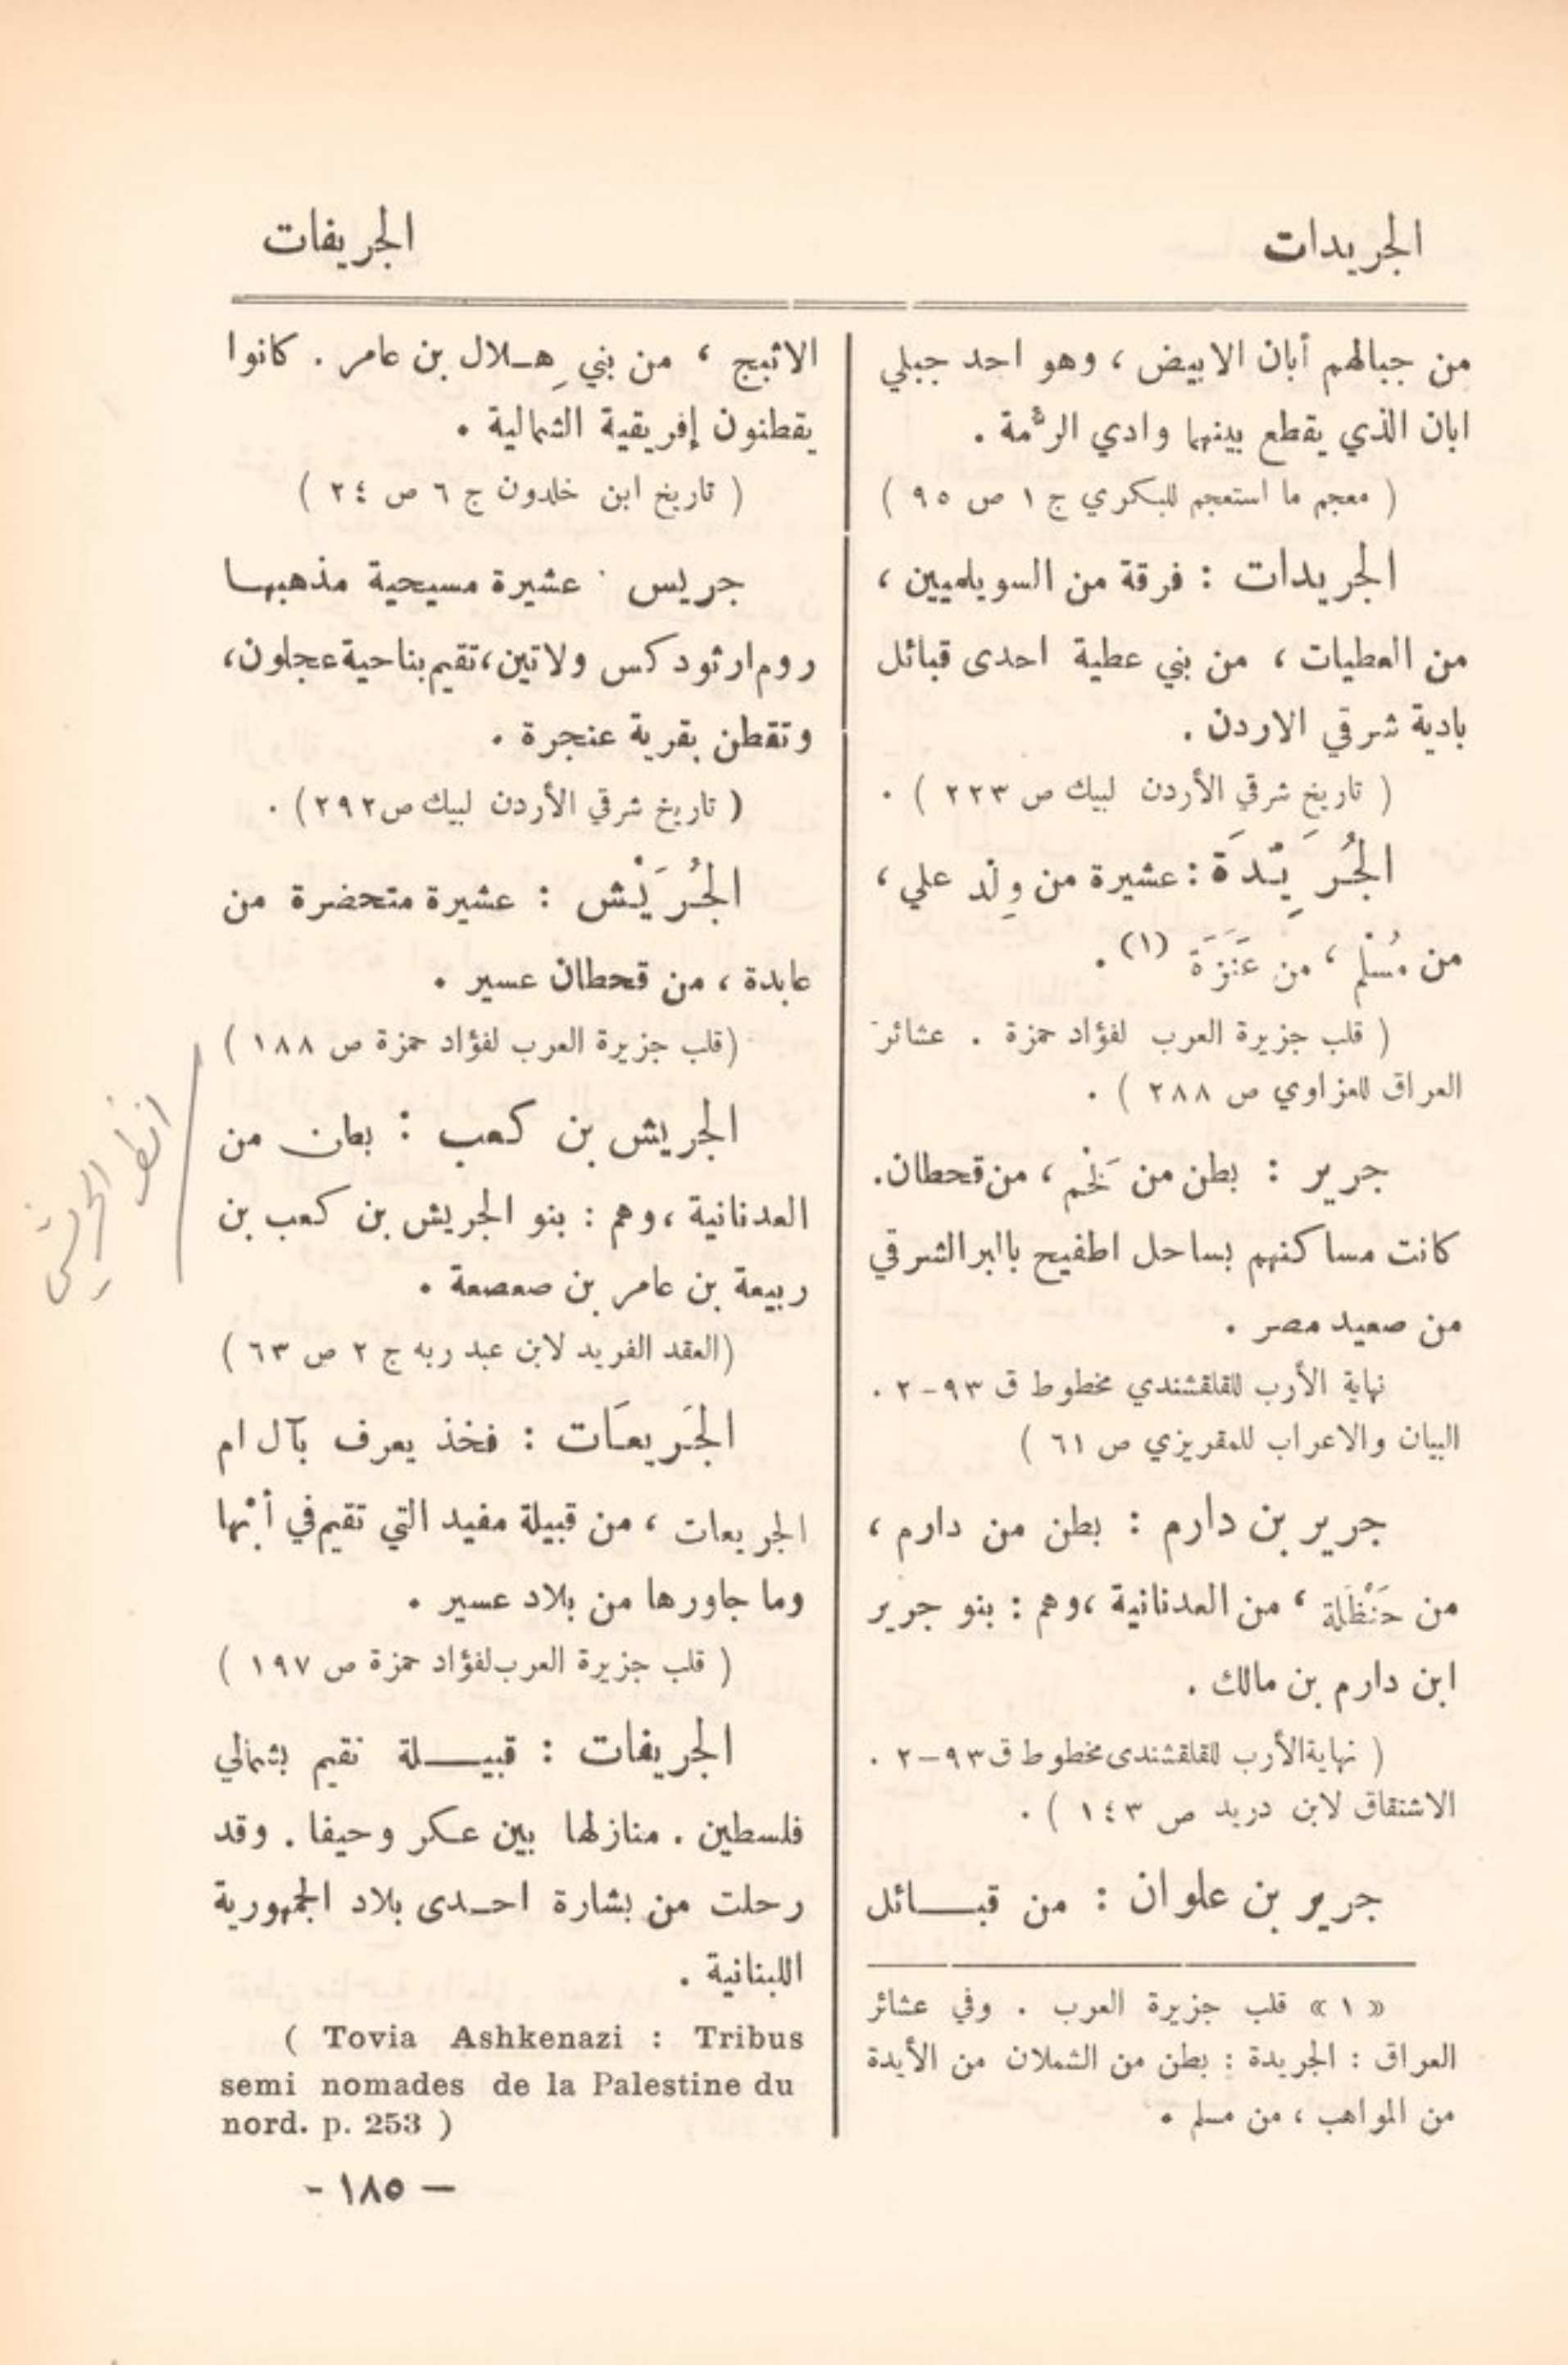 الجريدات
الجريفات
من جبالهم أبان الابيض ، وهو احد جبلي
ابان الذي يقطع بينهما وادي الرُّمة .
( معجم ما استعجم للبكري ج ١ ص ٩٥ )
الجريدات : فرقة من السويلميين ،
من العطيات ، من بني عطية احدى قبائل
بادية شرقي الاردن .
( تاريخ شرقي الأردن لبيك ص ٢٢٣ ) .
الجُرَيِّدَة : عشيرة من وِلْد علي ،
من مُسْلم ، من عَنَزَة (١) .
( قلب جزيرة العرب لفؤاد حمزة . عشائر
العراق للعزاوي ص ٢٨٨ ) .
جرير : بطن من لَخْم ، من قحطان.
كانت مساكنهم بساحل اطفيح بالبر الشرقي
من صعيد مصر .
نهاية الأرب للقلقشندي مخطوط ق ٩٣-٢ .
البيان والاعراب للمقريزي ص ٦١ )
جرير بن دارم : بطن من دارم ،
من حَنْظَلة ، من العدنانية ،وهم : بنو جرير
ابن دارم بن مالك .
( نهاية الأرب للقلقشندى مخطوط ق ٩٣-٢ .
الاشتقاق لابن دريد ص ١٤٣ ) .
جرير بن علوان : من قبــائل
« ١ » قلب جزيرة العرب . وفي عشائر
العراق : الجريدة : بطن من الشملان من الأيدة
من المواهب ، من مسلم .
الاثبج ، من بني هِـلال بن عامر . كانوا
يقطنون إفريقية الشمالية .
( تاريخ ابن خلدون ج ٦ ص ٢٤ )
جريس . عشيرة مسيحية مذهبها
روم ارثودكس ولاتين ، تقيم بناحية عجلون ،
وتقطن بقرية عنجرة .
( تاريخ شرقي الأردن لبيك ص ٢٩٢ ) .
الجُرَيْش : عشيرة متحضرة من
عابدة ، من قحطان عسير .
(قلب جزيرة العرب لفؤاد حمزة ص ١٨٨ )
الجريش بن كعب : بطن من
العدنانية ،وهم : بنو الجريش بن كعب بن
ربيعة بن عامر بن صعصعة .
(العقد الفريد لابن عبد ربه ج ٢ ص ٦٣ )
انظر الحريش
الجَريعَات : فخذ يعرف بآل ام
الجريعات ، من قبيلة مفيد التي تقيم في أبْها
وما جاورها من بلاد عسير .
( قلب جزيرة العرب لفؤاد حمزة ص ١٩٧ )
الجريفات : قبيــلة تقيم بشمالي
فلسطين . منازلها بين عكر وحيفا . وقد
رحلت من بشارة احـدى بلاد الجمهورية
اللبنانية .
( Tovia Ashkenazi : Tribus
semi nomades de la Palestine du
nord. p. 253 )
– ١٨٥ -